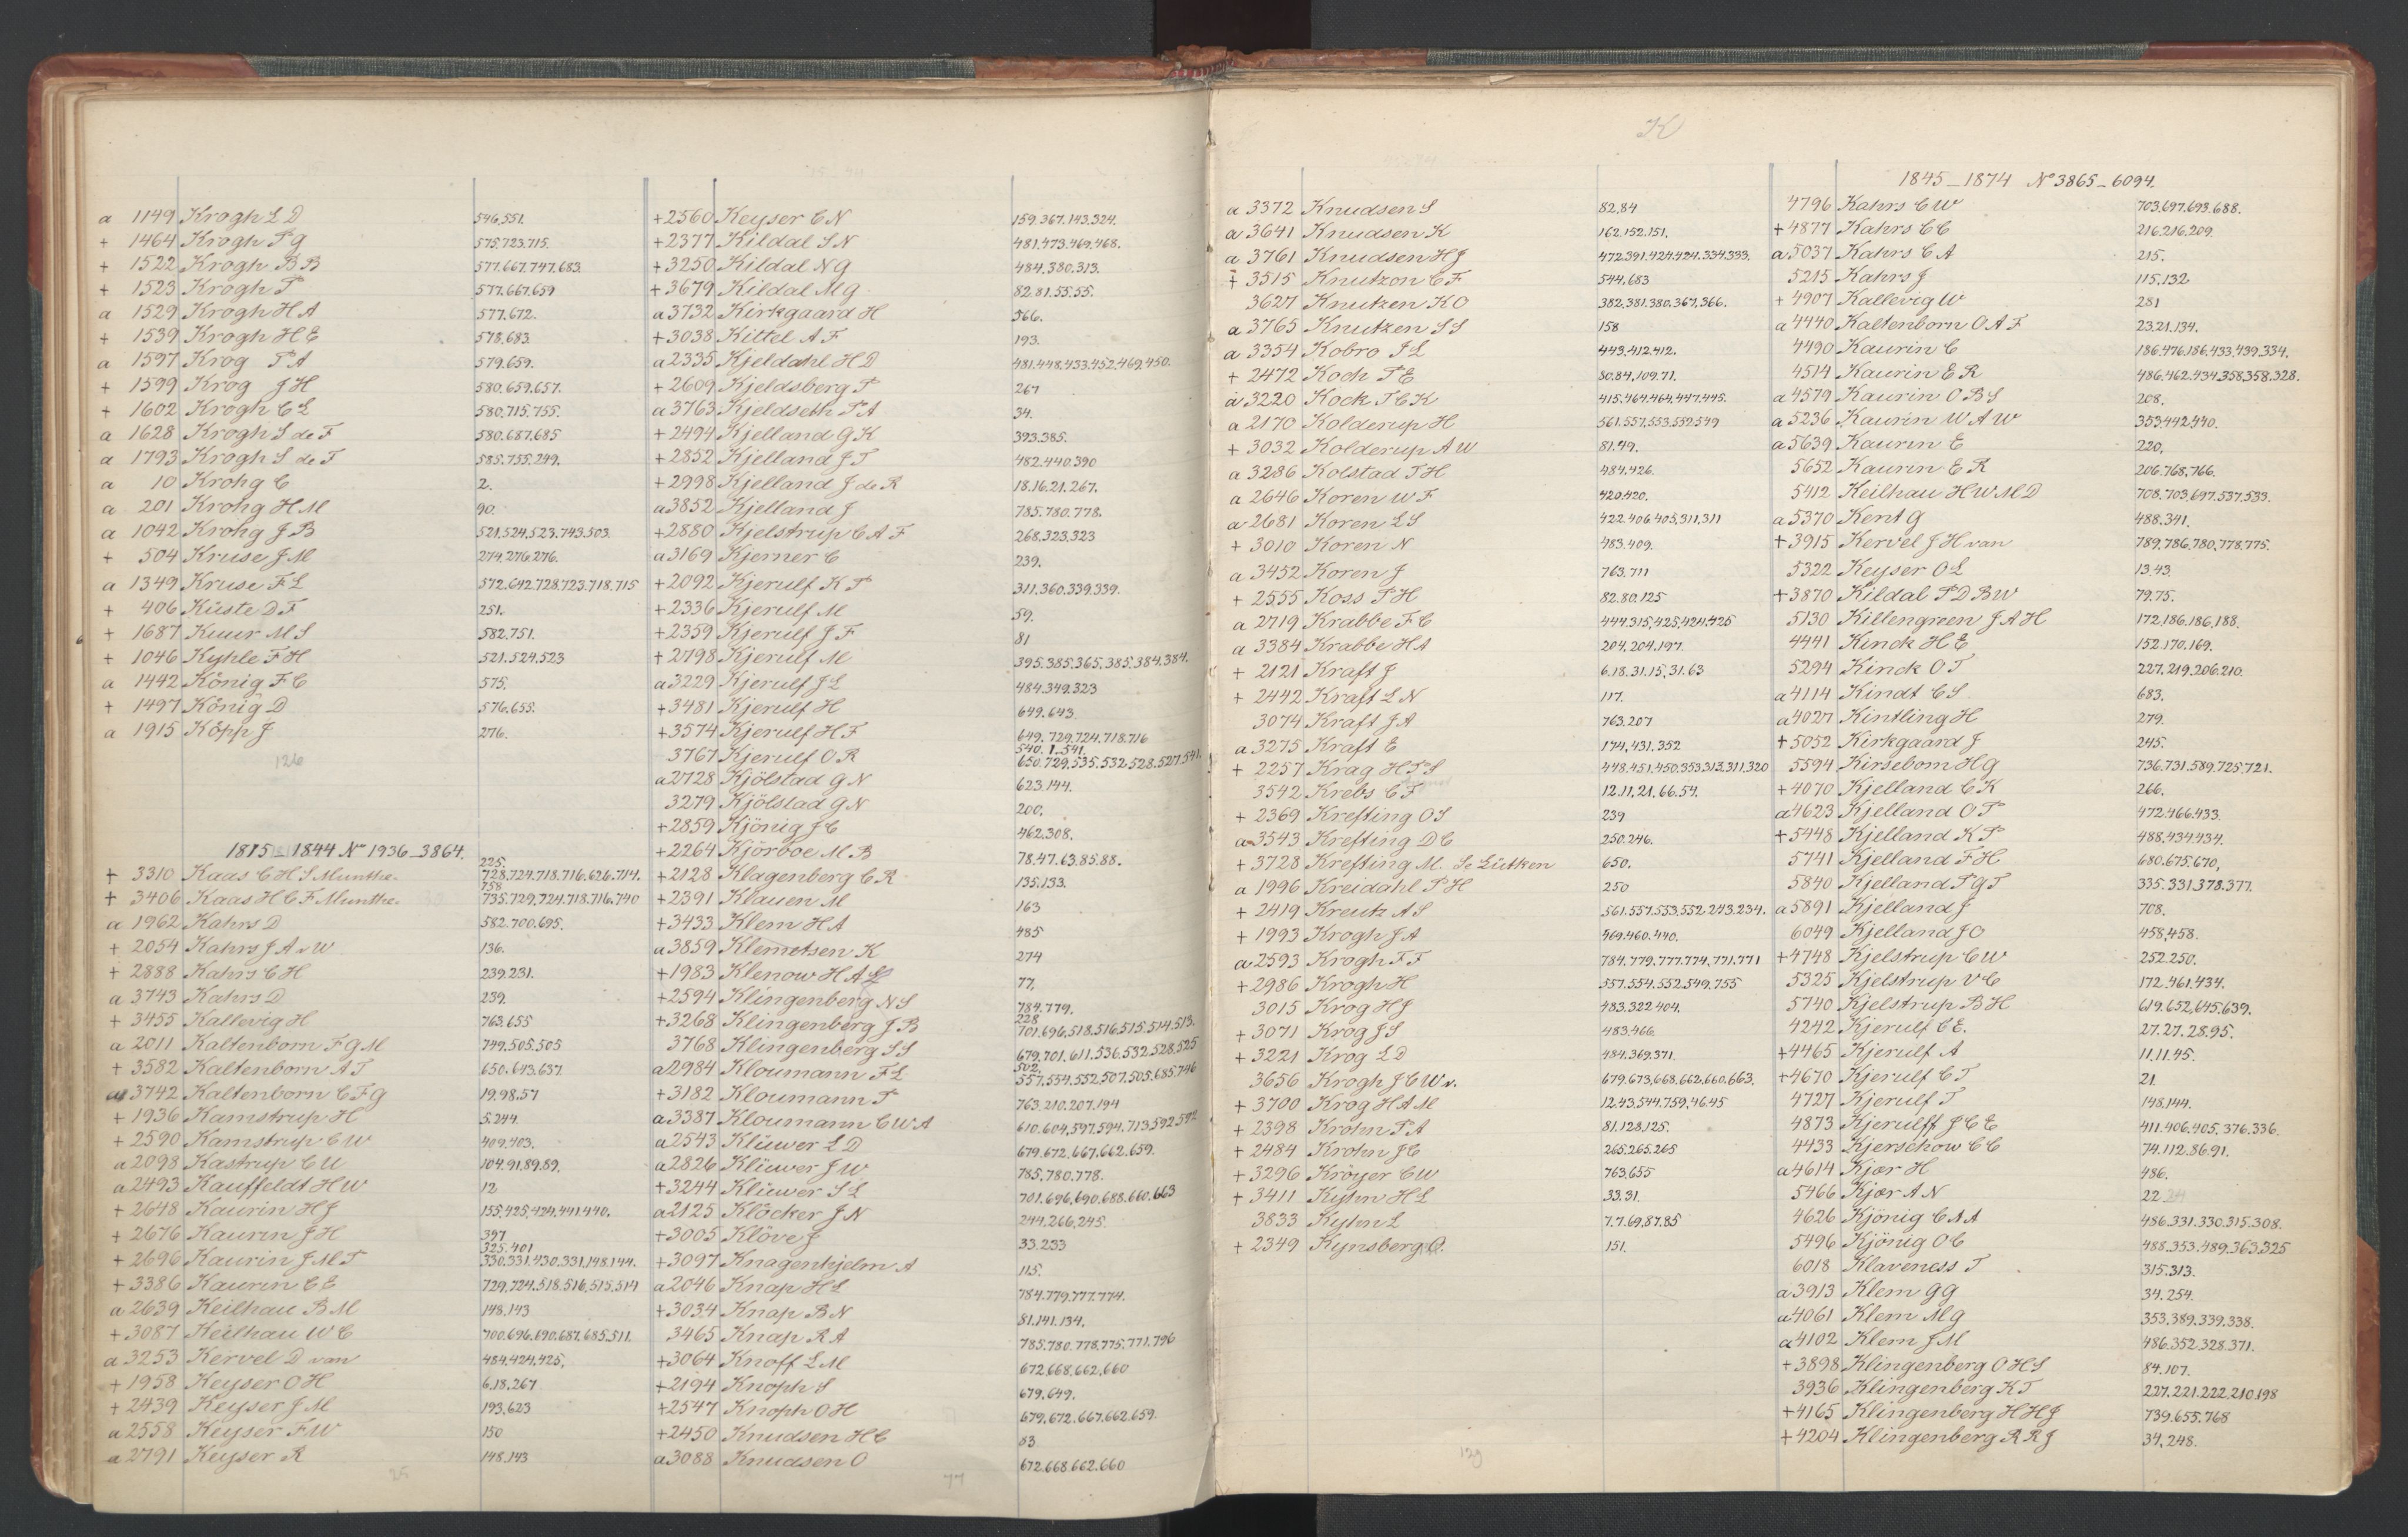 a 1149 Krogh L D 546.551.
+ 1464 Krogh P G 575.723.715.
+ 1522 Krogh B B 577.667.747.683.
+ 1523 Krogh P 577.667.659
a 1529 Krogh H A 577.672.
+ 1539 Krogh H E 578.683.
a 1597 Krog P A 579.659.
+ 1599 Krog J H 580.659.657.
+ 1602 Krogh C L 580.715.755.
a 1628 Krogh S de F 580.687.685
a 1793 Krogh S de F 585.755.249.
a 10 Krohg C 2.
a 201 Krohg H M 90.
a 1042 Krohg J B 521.524.523.743.503.
+ 504 Kruse J M 274.276.276.
a 1349 Kruse F L 572.642.728.723.718.715
+ 406 Küste D F 251.
+ 1687 Kuur M S 582.751.
+ 1046 Kyhle F H 521.524.523
a 1442 König F C 575.
+ 1497 König D 576.658.
a 1915 Köpp J 276.
126
1815_1844 No 1936_3864.
225.
+ 3310 Kaas C H S Munthe. 728.724.718.716.626.714.
758
+ 3406 Kaas H C F Munthe. 735.729.724.718.716.740
a 1962 Kahrs D 582.700.695.
+ 2054 Kahrs J A v W 136.
+ 2888 Kahrs C H 239.231.
a 3743 Kahrs D 239.
+ 3455 Kallevig H 763.655
a 2011 Kaltenborn F G M 749.505.505
+ 3582 Kaltenborn A T 650.643.637.
a 3742 Kaltenborn C F G 19.98.57
+ 1936 Kamstrup H 5.244.
+ 2590 Kamstrup C W 409.403.
a 2098 Kastrup C U 104.91.89.89.
a 2493 Kauffeldt H W 12
+ 2648 Kaurin H J 155.425.424.441.440.
+ 2676 Kaurin J H 397
325.401
+ 2696 Kaurin J M T 330.331.430.331.148.144.
+ 3386 Kaurin C E 729.724.518.516.515.514
a 2639 Keilhau B M 148.143
+ 3087 Keilhau W C 700.696.690.687.685.511.
a 3253 Kervel D van 484.424.425.
+ 1958 Keyser O H 6.18.267
+ 2439 Keyser J M 193.623
a 2558 Keyser F W 150
a 2791 Keyser R 148.143
25
+ 2560 Keyser C N 159.367.143.324.
+ 2377 Kildal S N 481.473.469.468.
+ 3250 Kildal N G 484.380.313.
+ 3679 Kildal M G 82.81.55.55.
a 3732 Kirkgaard H 366.
+ 3038 Kittel A F 193.
a 2335 Kjeldahl H D 481.448.453.452.469.450.
+ 2609 Kjeldsberg P 267
a 3763 Kjeldseth P A 34.
+ 2494 Kjelland G K 393.385.
+ 2852 Kjelland J T 482.440.390
+ 2998 Kjelland J de R 18.16.21.267.
a 3852 Kjelland J 785.780.778.
+ 2880 Kjelstrup C A F 268.323.323
a 3169 Kjerner C 239.
+ 2092 Kjerulf K P 311.360.339.339.
+ 2336 Kjerulf M 59.
+ 2359 Kjerulf J F 81
+ 2798 Kjerulf M 395.385.365.385.384.384.
a 3229 Kjerulf J L 484.349.323
+ 3481 Kjerulf H 649.643
+ 3574 Kjerulf H F 649.729.724.718.716
540.1.541.
3767 Kjerulf O R 650.729.535.532.528.527.541.
a 2728 Kjölstad G N 623.144.
3279 Kjölstad G N 200.
+ 2859 Kjönig J C 462.308.
+ 2264 Kjörboe M B 78.47.63.85.88.
+ 2128 Klagenberg C R 135.133.
+ 2391 Klauen M 163
+ 3433 Klem H A 485
a 3859 Klemetsen K 274
+ 1983 Klenow H A 77.
+ 2594 Klingenberg N S 784.779.
228
+ 3268 Klingenberg J B 701.696.518.516.515.514.513.
3768 Klingenberg S S 679.701.611.536.532.528.525
502.
a 2984 Kloumann F L 557.554.552.507.505.685.746
+ 3182 Kloumann P 763.210.207.194
a 3387 Kloumann C W A 610.604.597.594.713.592.592
a 2543 Klüwer L D 679.672.667.662.659.
a 2826 Klüwer J W 785.780.778.
+ 3244 Klüwer S L 701.696.690.688.660.663
a 2125 Klöcker J N 244.266.245.
+ 3005 Klöve J 33.233
+ 3097 Knagenhjelm A 115.
a 2046 Knap H L 784.779.777.774.
+ 3034 Knap B N 81.141.134.
3465 Knap R A 785.780.778.775.771.796
+ 3064 Knoff L M 672.668.662.660
+ 2194 Knoph S 679.649.
+ 2547 Knoph O H 679.672.667.662.659.
+ 2450 Knudsen H C 53
a 3088 Knudsen O 672.668.662.660
77
K
a 3372 Knudsen S 82.84
a 3641 Knudsen K 162.152.151.
a 3761 Knudsen H J 472.391.424.424.334.333.
+ 3515 Knutzon C F 544.683
3627 Knutzen K O 382.381.380.367.366.
a 3765 Knutzen S S 158
a 3354 Kobro J L 443.412.412.
+ 2472 Koch P E 80.84.109.71.
a 3220 Kock T C K 415.464.464.447.445.
a 2170 Kolderup H 561.557.553.552.549
+ 3032 Kolderup A W 81.49.
a 3286 Kolstad T H 484.426.
a 2646 Koren W F 420.420.
a 2681 Koren L S 422.406.405.311.311
+ 3010 Koren N 483.409.
a 3452 Koren J 763.711
+ 2555 Koss P H 82.80.125
a 2719 Krabbe F C 444.315.425.424.425
a 3384 Krabbe H A 204.204.197.
+ 2121 Kraft J 6.18.31.15.31.63
+ 2442 Kraft L N 117.
3074 Kraft J A 763.207
a 3275 Kraft E 174.431.352
+ 2257 Krag H P S 448.451.450.353.313.311.320
3542 Krebs C F 12.11.21.66.54.
+ 2369 Krefting O S 239
a 3543 Krefting D C 250.246.
+ 3728 Krefting M. S. Lütken 650.
a 1996 Kreidahl P H 250
+ 2419 Kreutz A S 561.557.553.552.243.234.
+ 1993 Krogh J A 469.460.440.
a 2593 Krogh F F 784.779.777.774.771.771
+ 2986 Krogh H 557.554.552.549.755
3015 Krog H J 483.322.404.
+ 3071 Krog J S 483.466
+ 3221 Krog L D 484.369.371.
3656 Krogh J C W v. 679.673.668.662.660.663.
+ 3700 Krog H A M 12.43.544.759.46.45
+ 2398 Krohn P A 81.128.125.
+ 2484 Krohn J C 265.265.265
+ 3296 Kröyer C W 763.655
+ 3411 Kylm H L 33.31.
3833 Kylm L 7.7.69.87.85
+ 2349 Kynsberg O. 151.
129
1845_1874 No 3865_6094.
4796 Kahrs C W 703.697.693.688.
+ 4877 Kahrs C C 216.216.209.
a 5037 Kahrs C A 215.
5215 Kahrs J 115.132
+ 4907 Kallevig W 281
a 4440 Kaltenborn O A F 23.21.134.
4490 Kaurin C 186.476.186.433.439.334.
4514 Kaurin E R 486.462.434.358.358.328.
a 4579 Kaurin O B S 208.
a 5236 Kaurin W A W 353.442.440.
a 5639 Kaurin E 220.
5652 Kaurin E R 206.768.766.
5412 Keilhau H W M D 708.703.697.537.533.
a 5370 Kent G 488.341.
+ 3915 Kervel J H van 789.786.780.778.775.
5322 Keyser O L 13.43.
+ 3870 Kildal P D B W 79.75.
5130 Killengreen J A H 172.186.186.188.
4441 Kinck H E 152.170.169.
5294 Kinck O T 227.219.206.210.
a 4114 Kindt C S 683.
a 4027 Kintling H 279.
+ 5052 Kirkgaard J 245.
5594 Kirsebom H G 736.731.589.725.721.
+ 4070 Kjelland C K 266.
a 4623 Kjelland O P 472.466.433.
+ 5448 Kjelland K P 488.434.434.
5741 Kjelland F H 680.675.670.
5840 Kjelland P G T 335.331.378.377.
a 5891 Kjelland J 708.
6049 Kjelland J O 458.458.
+ 4748 Kjelstrup C W 252.250.
5325 Kjelstrup V C 172.461.434.
5740 Kjelstrup B H 619.652.645.639.
4242 Kjerulf C E. 27.27.28.95.
+ 4465 Kjerulf A 11.11.45.
+ 4670 Kjerulf C T 21
4727 Kjerulf T 148.144.
4873 Kjerulff J C E 411.406.405.376.336.
4433 Kjerschow C C 74.112.86.91.
a 4614 Kjær H 486.
5466 Kjær A N 22
4626 Kjönig C A A 486.331.330.315.308.
5496 Kjönig O C 488.353.489.363.325
6018 Klaveness T 315.313.
a 3913 Klem G G 34.254.
a 4061 Klem M G 353.389.339.338.
a 4102 Klem J M 486.352.328.371.
+ 3898 Klingenberg O H S 84.107.
3936 Klingenberg K T 227.221.222.210.198
+ 4165 Klingenberg H H J 739.655.768
+ 4204 Klingenberg R R J 34.248.